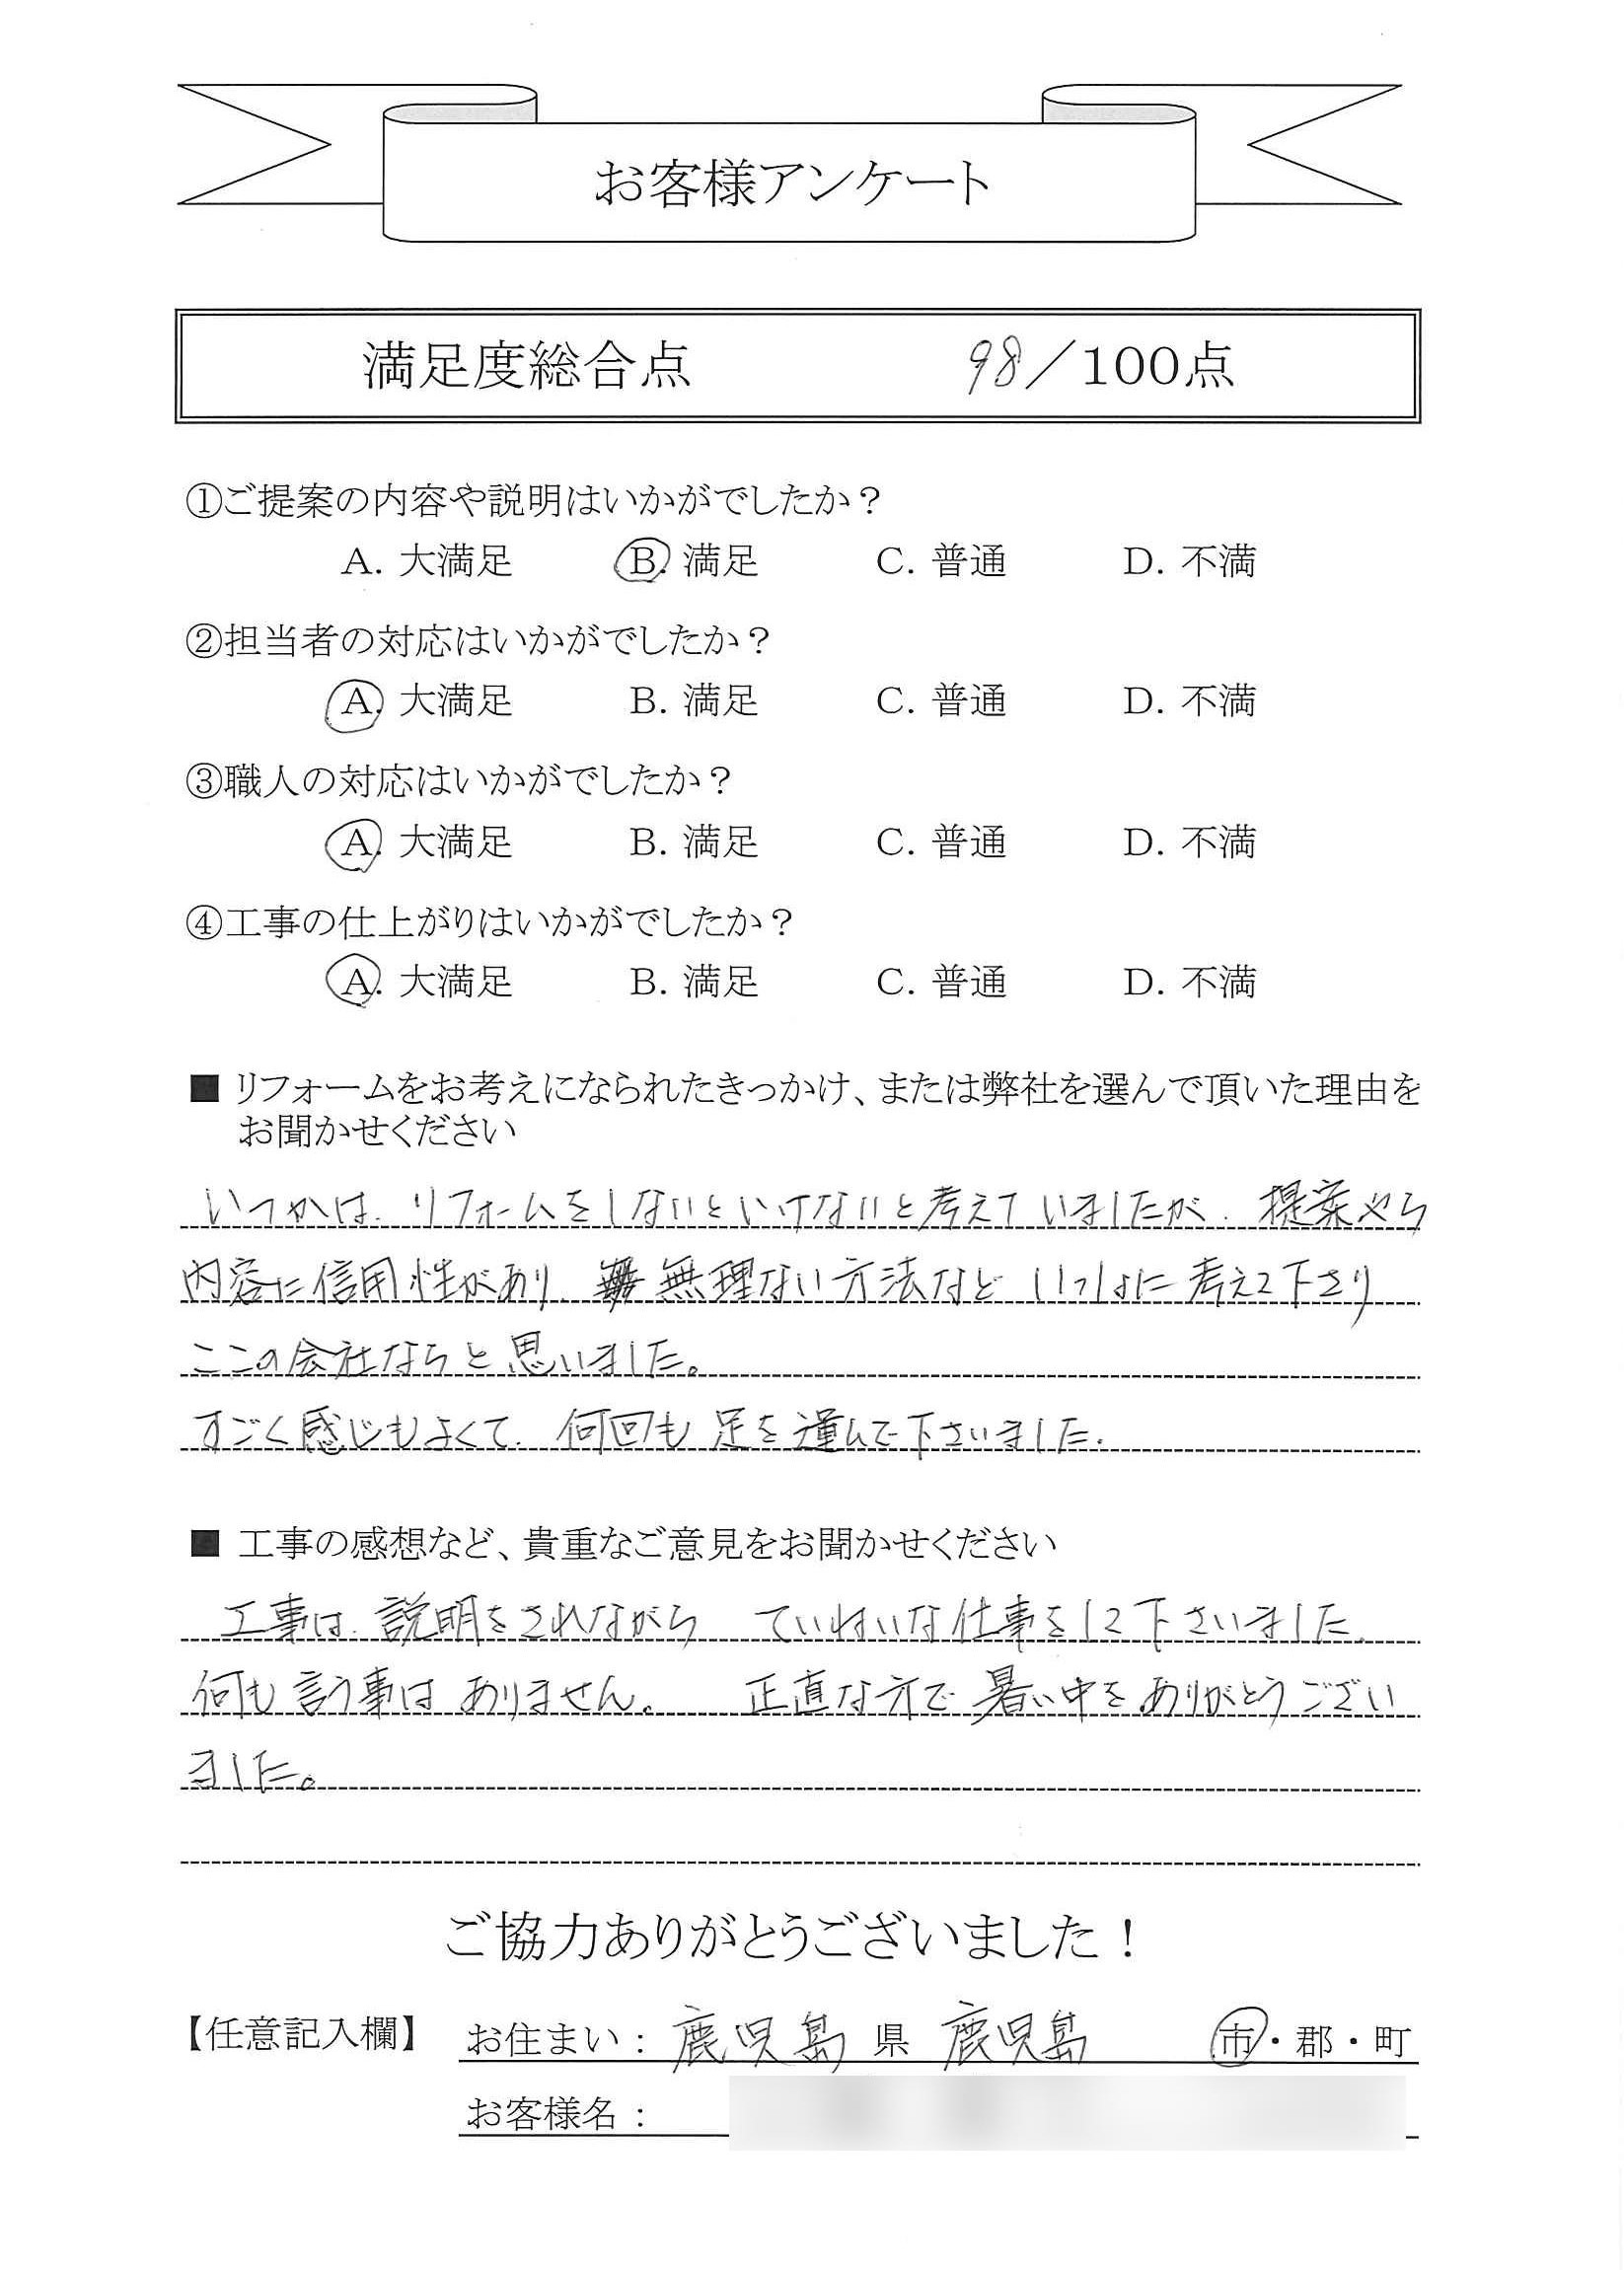 お客様アンケート
満足度総合点 98／100点
①ご提案の内容や説明はいかがでしたか？
A. 大満足 B. 満足 C. 普通 D. 不満
②担当者の対応はいかがでしたか？
A. 大満足 B. 満足 C. 普通 D. 不満
③職人の対応はいかがでしたか？
A. 大満足 B. 満足 C. 普通 D. 不満
④工事の仕上がりはいかがでしたか？
A. 大満足 B. 満足 C. 普通 D. 不満
■ リフォームをお考えになられたきっかけ、または弊社を選んで頂いた理由を
お聞かせください
いつかは、リフォームをしないといけないと考えていましたが、提案やら
内容に信用性があり、無理ない方法など いっしょに考えて下さり
ここの会社ならと思いました。
すごく感じもよくて、何回も足を運んで下さいました.
■ 工事の感想など、貴重なご意見をお聞かせください
工事は、説明をされながら ていねいな仕事をして下さいました、
何も言う事は ありません。 正直な方で 暑い中を ありがとうござい
ました。
ご協力ありがとうございました！
【任意記入欄】 お住まい： 鹿児島 県 鹿児島 市・郡・町
お客様名：